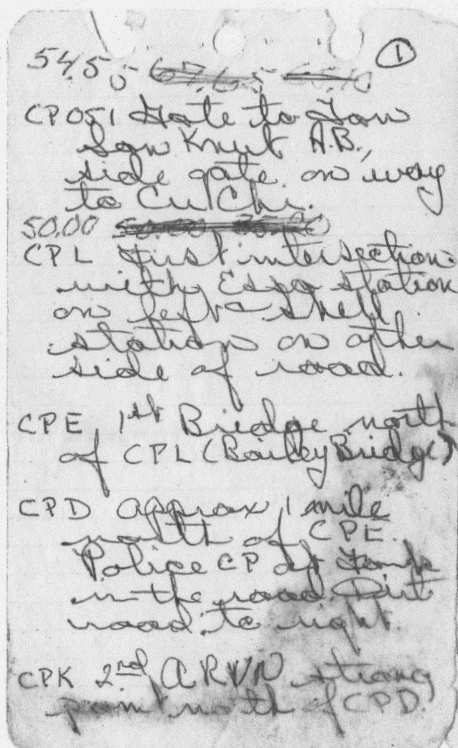 ①
54.50
CP051 Gate to Tan
Son Knut A.B.,
side gate on way
to Cu Chi.
50.00
CPL first intersection
with Esso station
on left shell
station on other
side of road.
CPE 1st Bridge north
of CPL (Bailey Bridge)
CPD approx 1 mile
north of CPE.
Police CP at
in the road Dirt
road to right.
CPK 2nd ARVN strong
north of CPD.